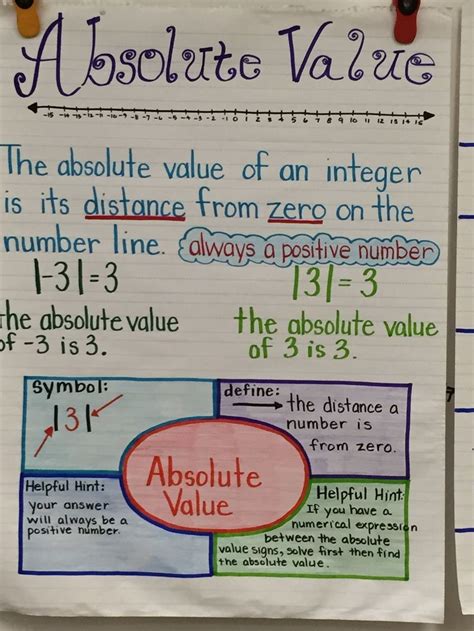 Absolute Value
-15 -14 -13 -12 -11 -10 -9 -8 -7 -6 -5 -4 -3 -2 -1 0 1 2 3 4 5 6 7 8 9 10 11 12 13 14 15
The absolute value of an integer
is its distance from zero on the
number line. always a positive number
|-3|=3
the absolute value
of -3 is 3.
|3|=3
the absolute value
of 3 is 3.
Symbol:
|3|
define:
→ the distance a
number is
from zero.
Absolute
Value
Helpful Hint:
your answer
will always be a
positive number.
Helpful Hint:
If you have a
numerical expression
between the absolute
value signs, solve first then find
the absolute value.